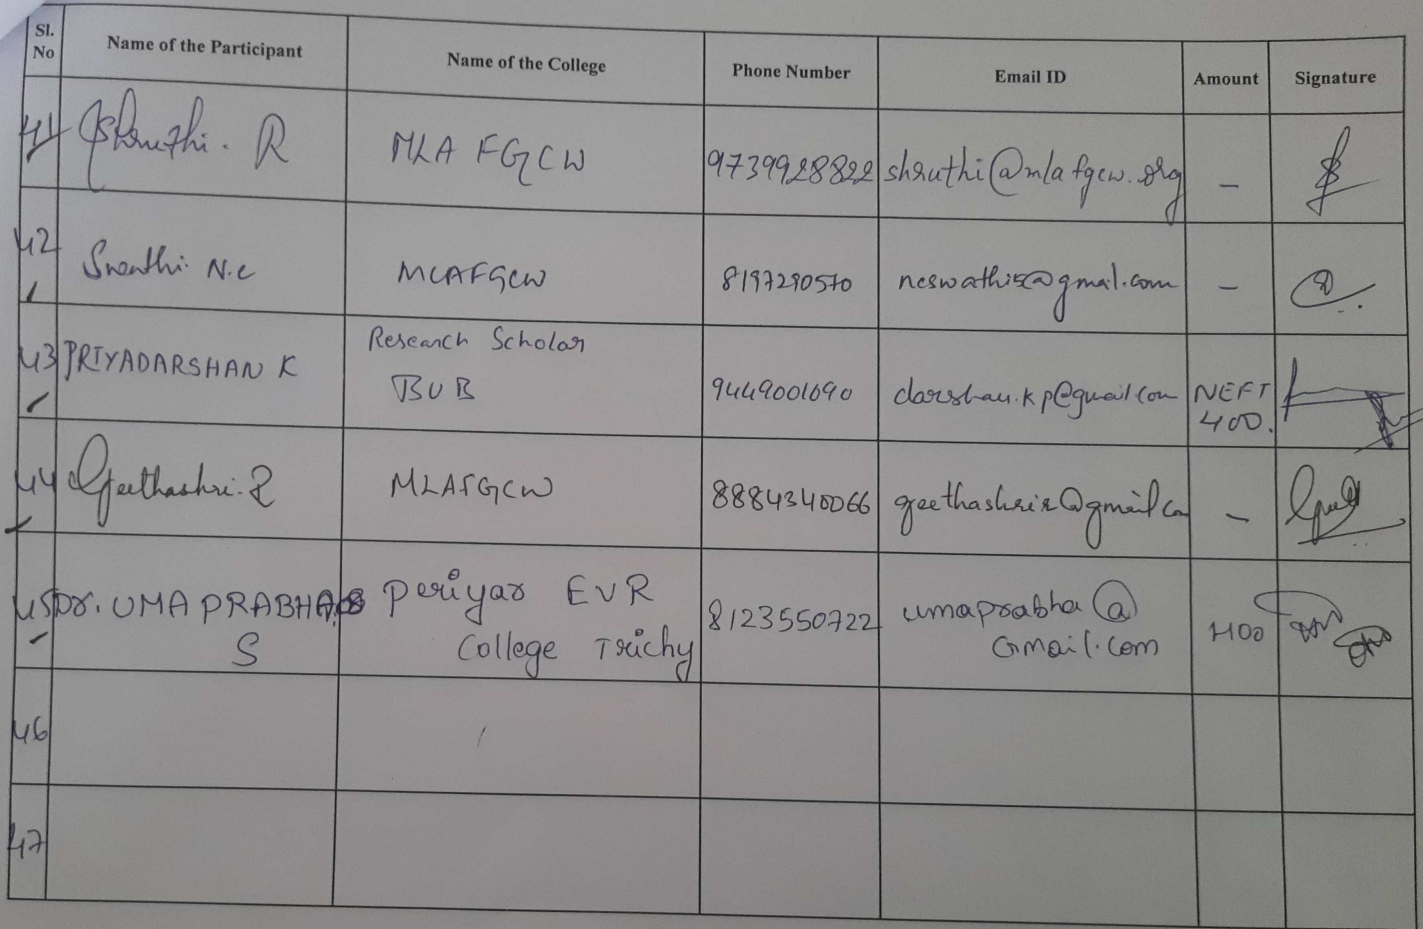 Sl. No Name of the Participant Name of the College Phone Number Email ID Amount Signature
41 Shruthi. R MLA FGCW 9739928822 shruthi@mlafgcw.org -
42 Swathi N.C MLAFGCW 8197290570 ncswathi5@gmail.com -
43 PRIYADARSHAN K Research Scholar
BUB 9449001690 darshan.kp@gmail.com NEFT
400.
44 Geethashri. R MLAFGCW 8884340066 geethashrir@gmail.com -
45 Dr. UMA PRABHA Periyar EVR
S College Trichy 8123550722 umaprabha@
Gmail.com 400
46
47